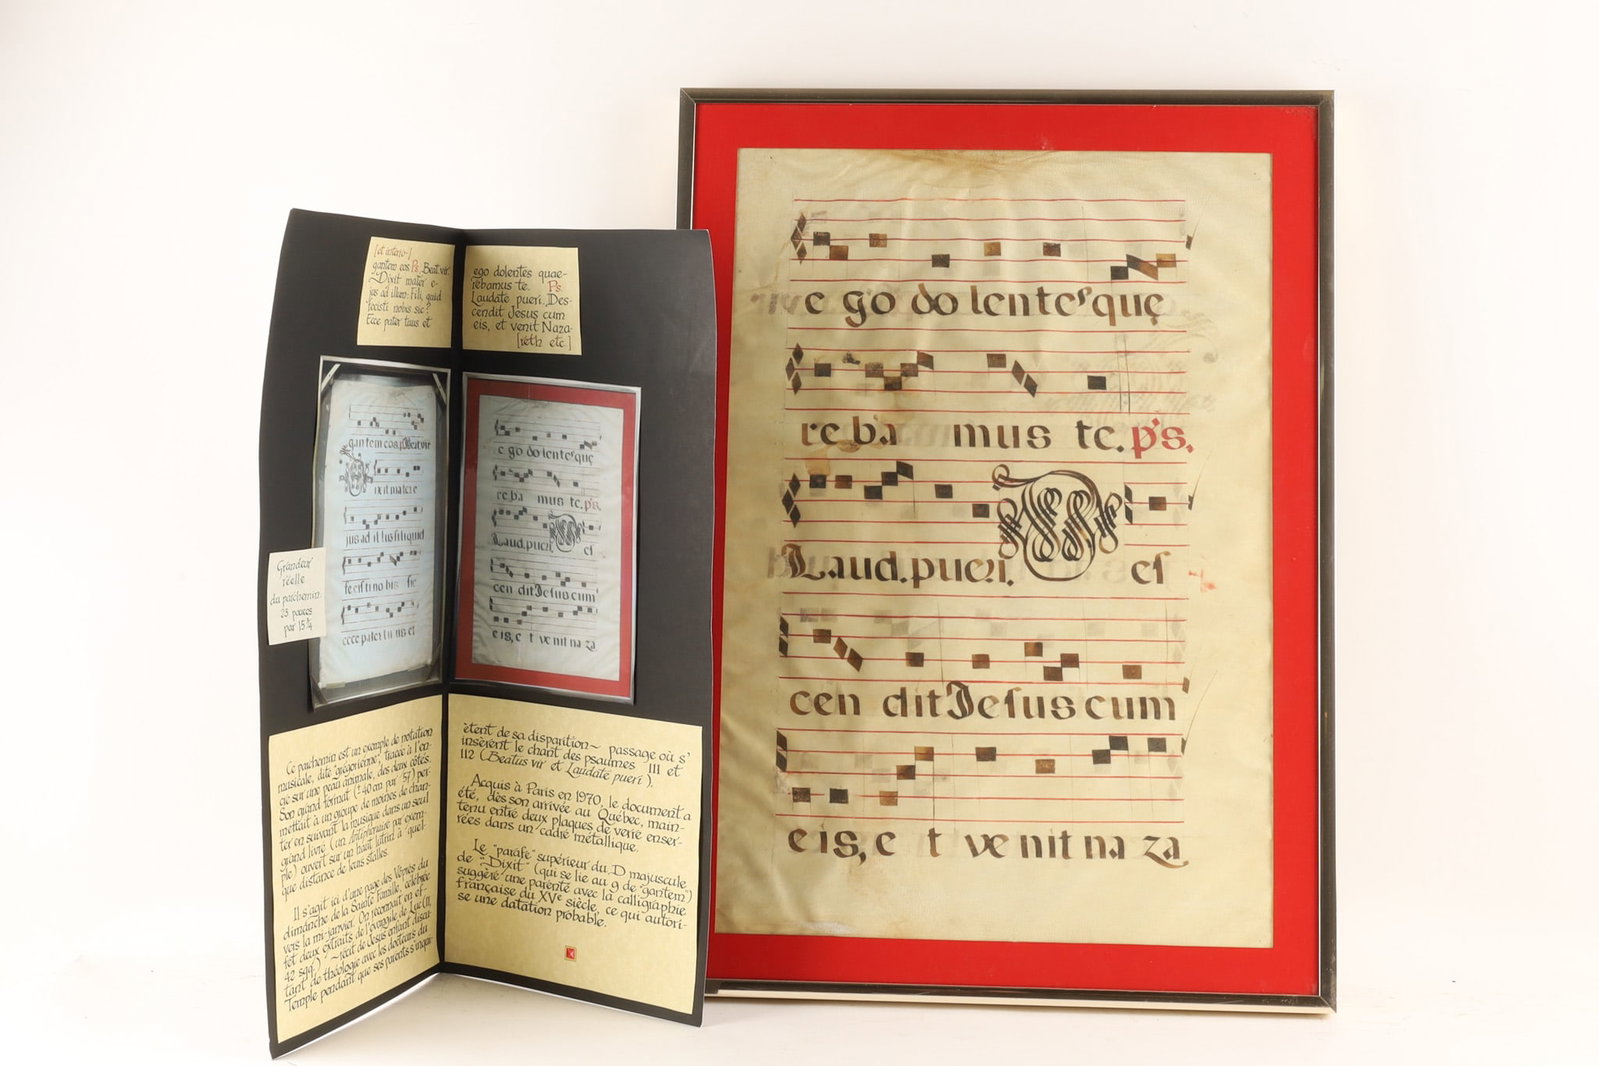 [et interro-]
gantem eos Ps. Beat.vir.
"Dixit mater e-
jus ad illum: Fili, quid
fecisti nobis sic?
Ecce pater tuus et
ego dolentes quae-
rebamus te. Ps.
Laudate pueri. Des-
cendit Jesus cum
eis, et venit Naza-
[reth etc]
gantem eos ps Beatvir
ixit mater e
jus ad il lus fili quid
fe cis ti no bis sic
ecce pater tu us et
e go do lenteſque
re ba mus te. p's.
Laud. pueri. D eſ
cen dit Jeſus cum
e is, e t ve nit na za
Grandeur
réelle
du parchemin
23 pouces
par 15¼
Ce parchemin est un exemple de notation
musicale, dite "grégorienne", tracée à l'en-
cre sur une peau animale, des deux côtés.
Son grand format (± 40 cm par 57) per-
mettait à un groupe de moines de chan-
ter en suivant la musique dans un seul
grand livre (un Antiphonaire par exem-
ple) ouvert sur un haut lutrin à quel-
que distance de leurs stalles.
Il s'agit ici d'une page des Vêpres du
dimanche de la Sainte Famille, célébrée
vers la mi-janvier. On reconnaît en ef-
fet deux extraits de l'évangile de Luc (II,
42 sqq.) ~ récit de Jésus enfant discu-
tant de théologie avec les docteurs du
Temple pendant que ses parents s'inqui-
ètent de sa disparition ~ passage où s'
insèrent le chant des psaumes 111 et
112 (Beatus vir et Laudate pueri).
Acquis à Paris en 1970, le document a
été, dès son arrivée au Québec, main-
tenu entre deux plaques de verre enser-
rées dans un cadre métallique.
Le "parafe" supérieur du D majuscule
de "Dixit" (qui se lie au g de "gantem")
suggère une parenté avec la calligraphie
française du XVe siècle, ce qui autori-
se une datation probable.
e go do lenteſque
re ba mus te. p's.
Laud. pueri. D eſ
cen dit Jeſus cum
e is, e t ve nit na za